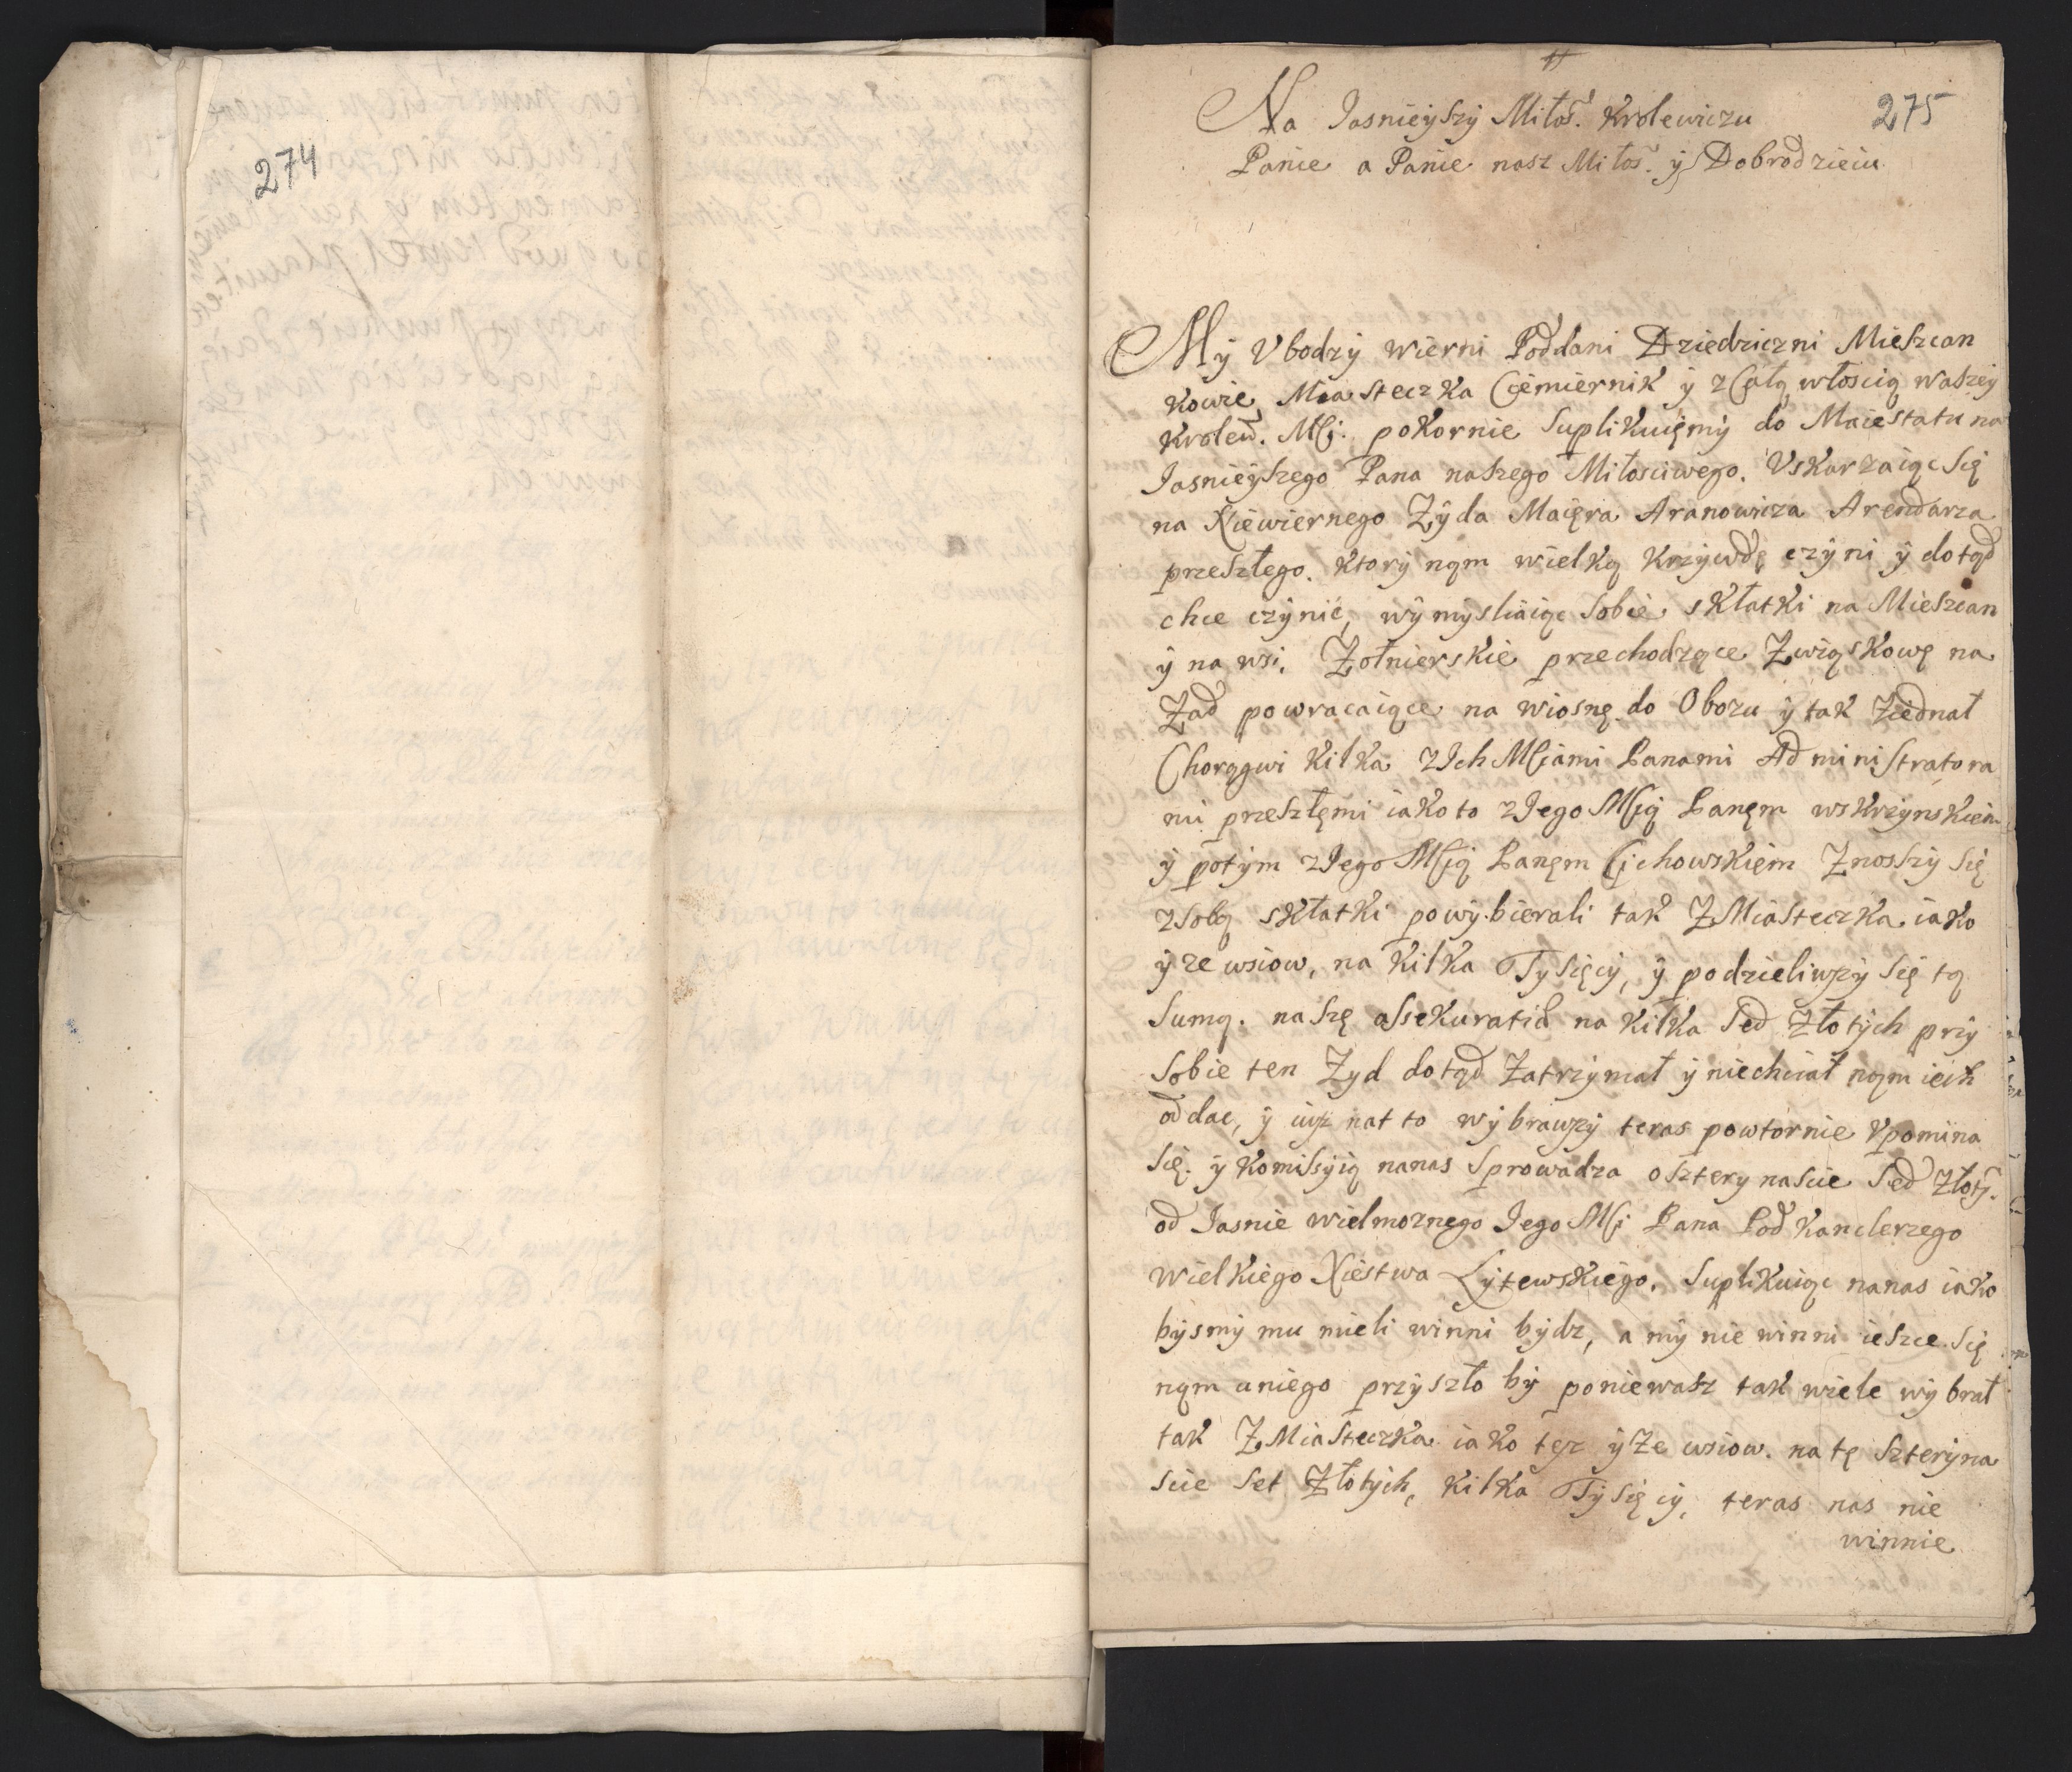 274
275
Na Jasnieyszÿ Miłoś. Krolewiczu
Panie a Panie nasz Miłoś. ÿ Dobrodzieiu
Mÿ Vbodzÿ wierni Poddani Dziedziczni Mieszcan
kowie Miasteczka Ciemiernik ÿ z Całą włoscią waszeÿ
Krolew. MCi. pokornie Suplikuięmÿ do Maiestatu na
Jasnieÿszego Pana naszego Miłosciwego. Vskarzaiąc Się
na Niewiernego Zÿda Maięra Aranowicza Arendarza
przeszłego. ktorÿ nąm wielką krzÿwdę czÿni ÿ dotąd
chce czÿnić, wÿmÿsliaiąc Sobie skłatki na Mieszcan
ÿ na wsi. Zołnierskie przechodzące Zwiąskowę na
Zad powracaiące na wiosnę do Obozu ÿ tak Ziednał
Chorągwi kilka z Ich MCiami Panami Administratora
mi przeszłęmi iako to z Jego MCią Panęm wskrzÿnskiem
ÿ potÿm z Jego MCią Panęm Cichowskięm Znosszÿ Się
z Sobą skłatki powÿbierali tak Z Miasteczka iako
ÿ ze wsiow, na kilka Tysięcÿ, ÿ podzieliwszÿ Się tą
Sumą. naszę assekuratią na kilka Sed Złotÿch przÿ
Sobie ten Zyd dotąd Zatrzÿmał ÿ niechciał nąm ieih
oddac, ÿ iusz nat to wÿbrawszÿ teras powtornie Vpomina
Się. ÿ komisÿią nanas Sprowadza o szterynascie Sed Złotÿ.
od Jasnie wielmoznego Jego MCi Pana Podkanclerzego
Wielkiego Xięstwa Lÿtewskiego. Suplikuiąc nanas iako
bÿsmÿ mu mieli winni bÿdz, a mÿ nie winni ieszce Się
nąm uniego przÿszło bÿ poniewasz tak wiele wÿbrał
tak Z Miasteczka iako tęz ÿ Ze wsiow. na tę Szterÿna
scie Set Złotÿch, kilka Tÿsięcÿ, teras nas nie
winnie